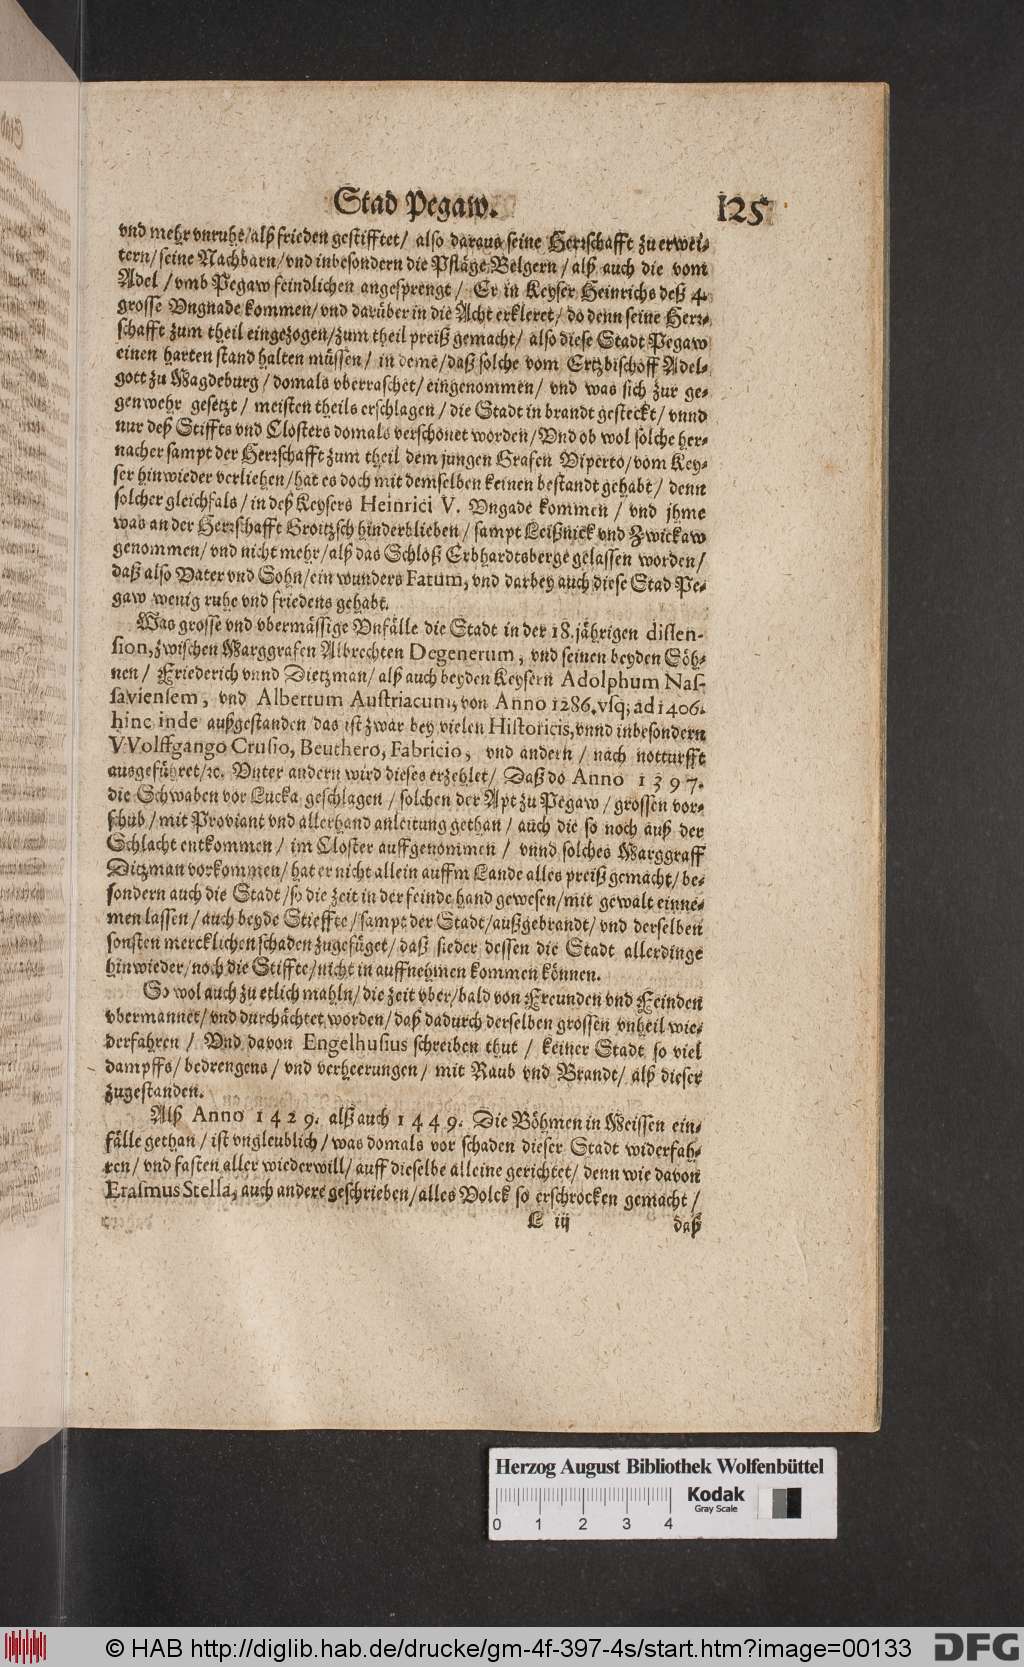 Stad Pegaw. 125
vnd mehr vnruhe/alß frieden gestifftet/ also daraus seine Herrschafft zu erwei-
tern/seine Nachbarn/vnd inbesondern die Pfläge Belgern/alß auch die vom
Adel/vmb Pegaw feindlichen angesprengt/ Er in Keyser Heinrichs deß 4.
grosse Vngnade kommen/vnd darüber in die Acht erkleret/do denn seine Herr-
schafft zum theil eingezogen/zum theil preiß gemacht/ also diese Stadt Pegaw
einen harten stand halten müssen/ in deme/daß solche vom Ertzbischoff Adel-
gott zu Magdeburg/domals vberraschet/eingenommen/ vnd was sich zur ge-
genwehr gesetzt/ meisten theils erschlagen/die Stadt in brandt gesteckt/vnnd
nur deß Stiffts vnd Closters domals verschonet worden/Vnd ob wol solche her-
nacher sampt der Herrschafft zum theil dem jungen Grafen Viperto/vom Key-
ser hinwieder verliehen/hat es doch mit demselben keinen bestandt gehabt/ denn
solcher gleichfals/in deß Keysers Heinrici V. Vngade kommen/ vnd jhme
was an der Herrschafft Groitzsch hinderblieben/sampt Leißnick vnd Zwickaw
genommen/vnd nicht mehr/alß das Schloß Erbhardtsberge gelassen worden/
daß also Vater vnd Sohn/ein wunders Fatum, vnd darbey auch diese Stad Pe-
gaw wenig ruhe vnd friedens gehabt.
Was grosse vnd vbermässige Vnfälle die Stadt in der 18. jährigen dissen-
sion, zwischen Marggrafen Albrechten Degenerum, vnd seinen beyden Söh-
nen/ Friederich vnnd Dietzman/alß auch beyden Keysern Adolphum Nas-
saviensem, vnd Albertum Austriacum, von Anno 1286. vsq; ad 1406.
hinc inde außgestanden das ist zwar bey vielen Historicis, vnnd inbesondern
VVolffgango Crusio, Beuthero, Fabricio, vnd andern/ nach notturfft
ausgeführet/ꝛc. Vnter andern wird dieses erzehlet/ Daß do Anno 1397.
die Schwaben vor Lucka geschlagen/solchen der Apt zu Pegaw/grossen vor-
schub/mit Proviant vnd allerhand anleitung gethan/auch die so noch auß der
Schlacht entkommen/ im Closter auffgenommen/ vnnd solches Marggraff
Ditzman vorkommen/hat er nicht allein auffm Lande alles preiß gemacht/be-
sondern auch die Stadt/so die zeit in der feinde hand gewesen/mit gewalt einne-
men lassen/auch beyde Stieffte/sampt der Stadt/außgebrandt/vnd derselben
sonsten mercklichen schaden zugefüget/daß sieder dessen die Stadt allerdinge
hinwieder/noch die Stiffte/nicht in auffnehmen kommen können.
So wol auch zu etlich mahln/die zeit vber/bald von Freunden vnd Feinden
vbermannet/vnd durchächtet worden/daß dadurch derselben grossen vnheil wie-
derfahren/ Vnd davon Engelhusius schreiben thut/ keiner Stadt so viel
dampffs/bedrengens/vnd verheerungen/ mit Raub vnd Brandt/alß dieser
zugestanden.
Alß Anno 1429. alß auch 1449. Die Böhmen in Meissen ein-
fälle gethan/ist vngleublich/was domals vor schaden dieser Stadt widerfah-
ren/vnd fasten aller wiederwill/auff dieselbe alleine gerichtet/denn wie davon
Erasmus Stella, auch andere geschrieben/alles Volck so erschrocken gemacht/
L iij daß
Herzog August Bibliothek Wolfenbüttel
Kodak
Gray Scale
0 1 2 3 4
© HAB http://diglib.hab.de/drucke/gm-4f-397-4s/start.htm?image=00133 DFG